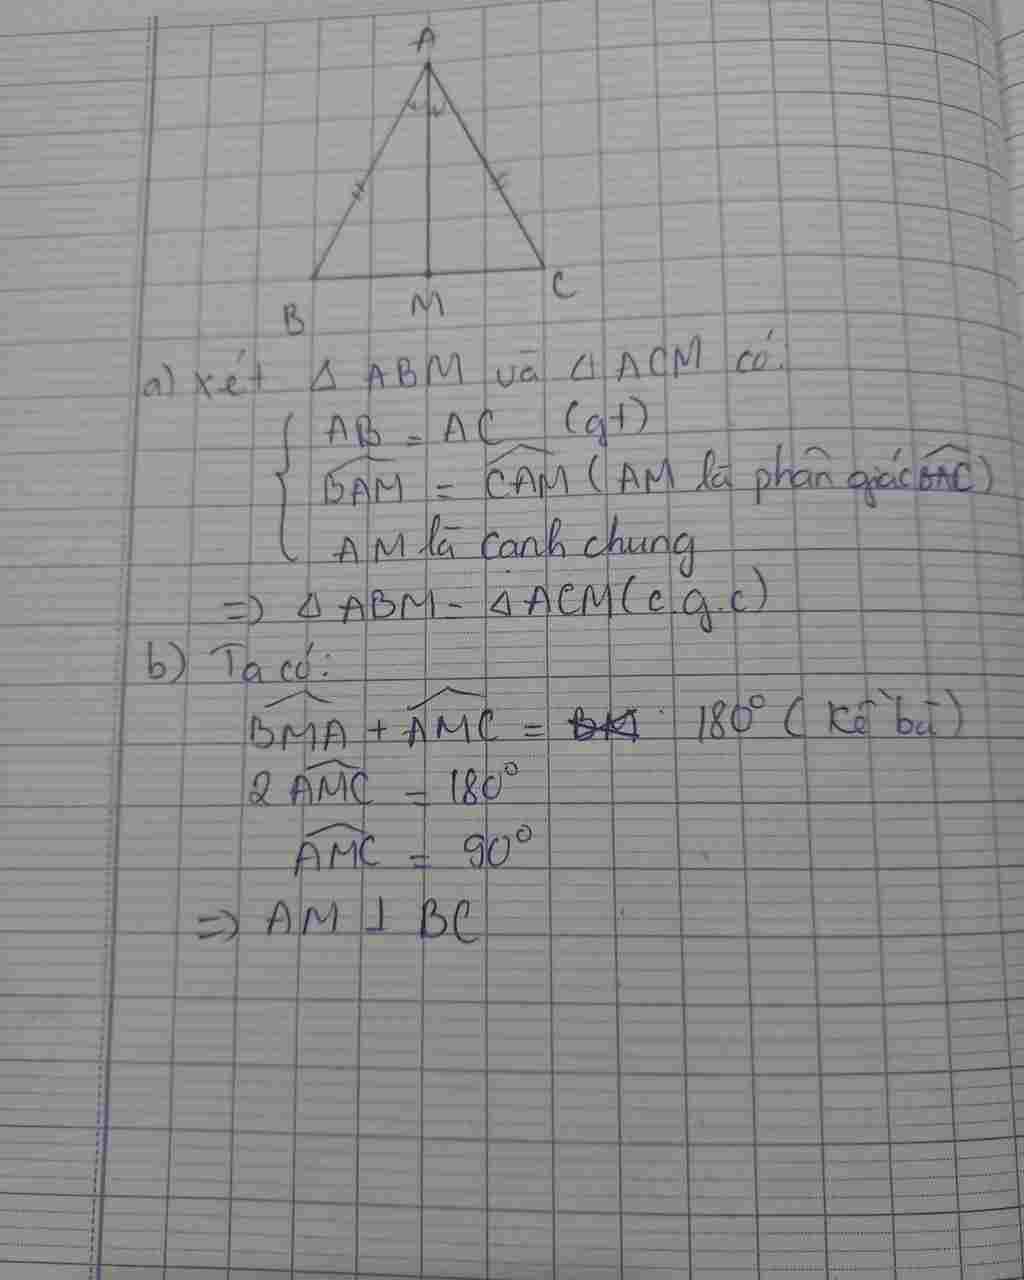 A
B M C
a) xét Δ ABM và Δ ACM có:
AB = AC (gt)
BAM̂ = CAM̂ (AM là phân giác BAĈ)
AM là cạnh chung
=> Δ ABM = Δ ACM (c.g.c)
b) Ta có:
BMÂ + AMĈ = 180° (kề bù)
2 AMĈ = 180°
AMĈ = 90°
=> AM ⊥ BC